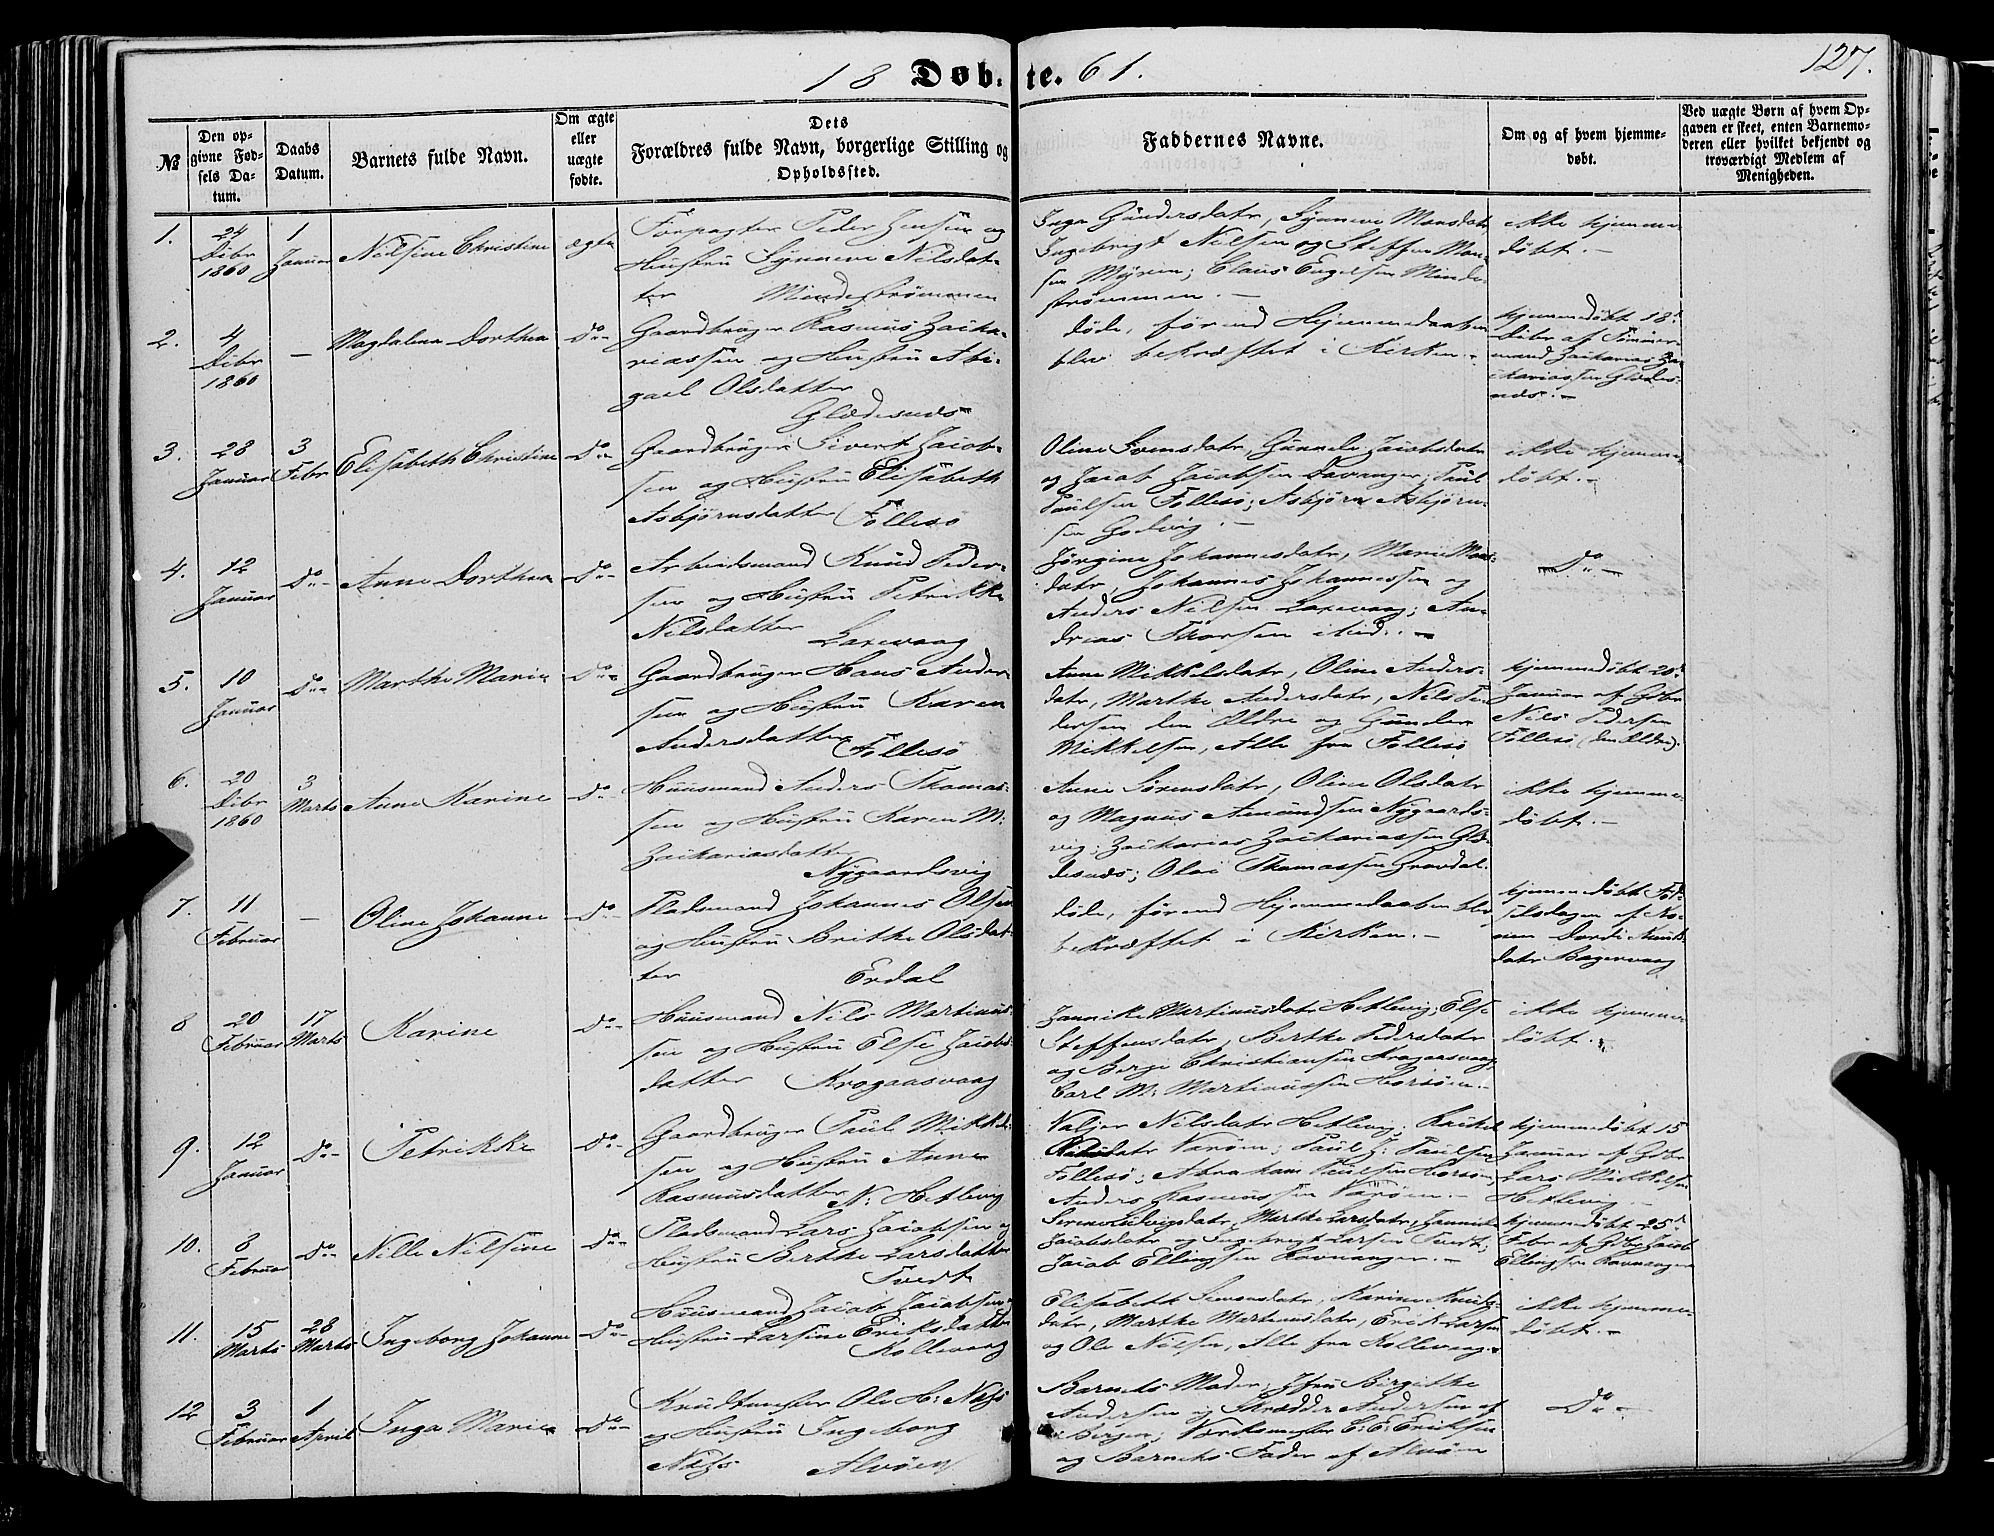 127.
18 Døbte. 61.
№
Den opgivne Fødsels Datum.
Daabs Datum.
Barnets fulde Navn.
Om ægte eller uægte fødte.
Dets Forældres fulde Navn, borgerlige Stilling og Opholdssted.
Faddernes Navne.
Om og af hvem hjemmedøbt.
Ved uægte Børn af hvem Opgaven er skeet, enten Barnemoderen eller hvilket bekjendt og troværdigt Medlem af Menigheden.
1.
24 Dcbr 1860
1 Januar
Nilsine Christine
ægte
Forpagter Peder Jensen og
Hustru Synneve Nilsdat-
ter Mindestrømmen
Inga Gundersdatr, Synneve Monsdatr
Ingebrigt Nilsen og Steffen Mon-
sen Myren; Claus Engelsen Minde-
strømmen.
ikke hjemme-
døbt.
2.
4 Dcbr 1860
Magdalena Dorthea
Do
Gaardbruger Rasmus Zacha-
riassen og Hustru Abi-
gael Olsdatter
Glædesnæs
døde, førend Hjemmedaaben
blev bekræftet i Kirken.
hjemmedøbt 18d
Dcbr af Tømmer-
mand Zacharias Za-
chariassen Glædes-
næs.
3.
28 Januar
3 Febr
Elisabeth Christine
Do
Gaardbruger Sivert Jacob-
sen og Hustru Elisabeth
Asbjørnsdatter Follesø
Oline Svensdatr, Gunnele Jacobsdatr
og Jacob Jacobsen Davanger; Paul
Paulsen Follesø; Asbjørn Asbjørn-
sen Godvig.
ikke hjemme-
døbt.
4.
12 Januar
Do
Anne Dorthea
Do
Arbeidsmand Knud Peder-
sen og Hustru Petrikke
Nilsdatter Laxevaag
Jørgine Johannesdatr, Marie Mons-
datr, Johannes Johannessen og
Anders Nilsen Laxevaag; An-
dreas Thorsen
Do
5.
10 Januar
Do
Marthe Marie
Do
Gaardbruger Hans Ander-
sen og Hustru Karen
Andersdatter Follesø
Anne Mikkelsdatr, Oline Anders-
datr, Marthe Andersdatr, Nils Pe-
dersen den Ældre og Gunder
Mikkelsen, Alle fra Follesø
hjemmedøbt 20d
Januar af Gbr
Nils Pedersen
Follesø (den Ældre).
6.
20 Dcbr 1860
3 Marts
Anne Karine
Do
Huusmand Anders Thomas-
sen og Hustru Karen M:
Zachariasdatter
Nygaardsvig
Anne Sørensdatr, Oline Olsdatr
og Magnus Amundsen Nygaards-
vig; Zacharias Zachariassen Glæ-
desnæs; Olai Thomassen Gravdal.
ikke hjemme-
døbt.
7.
11 Februar
Oline Johanne
Do
Pladsmand Johannes Olsen
og Hustru Brithe Olsdat-
ter Erdal
døde, førend Hjemmedaaben blev
bekræftet i Kirken.
hjemmedøbt Fød-
selsdagen af Ko-
nen Dordi Knuds-
datr Bagervaag
8
20 Februar
17 Marts
Karine
Do
Huusmand Nils Martinus-
sen og Hustru Else Jacobs-
datter Krogaasvaag
Jannike Martinusdatr Hetlevig; Else
Steffensdatr, Berthe Pedersdatr
og Berge Christiansen Krogaasvaag,
Carl M: Martinussen Horsøen.
ikke hjemme-
døbt.
9.
12 Januar
Do
Petrikke
Do
Gaardbruger Paul Mikkel-
sen og Hustru Anne
Rasmusdatter N: Hetlevig
Valjer Nilsdatr Hetlevig; Rachel
Nilsdatr Varøen; Paul J: Paulsen
Follesø; Abraham Paulsen Horsøen,
Anders Rasmussen Varøen.
hjemmedøbt 15
Januar af Gbr
Lars Mikkelsen
Hetlevig
10.
8 Februar
Do
Nille Nilsine
Do
Pladsmand Lars Jacobsen og
Hustru Berthe Larsdatter
Tvedt
Serine Ludvigsdatr, Marthe Larsdatr, Jannike
Jacobsdatr og Ingebrigt Larsen Tvedt;
Jacob Ellingsen Ravnanger.
hjemmedøbt 25d
Febr af Gbr Jacob
Ellingsen Ravnanger
11.
15 Marts
28 Marts
Ingeborg Johanne
Do
Huusmand Jacob Jacobsen og
Hustru Larsine Eriksdatter
Kollevaag
Elisabeth Simonsdatr, Karine Knuds-
datr, Marthe Martinusdatr, Erik Larsen
og Ole Nilsen, Alle fra Kollevaag.
ikke hjemme-
døbt.
12
3 Februar
1 April
Inga Marie
Do
Krudtmester Ole H: Næss
og Hustru Ingeborg
Næss Alvøen
Barnets Moder; Jfru Birgithe
Andersen og Skrædder Andersen af
Bergen; Værksmester C: E: Eriksen
og Barnets Fader af Alvøen
Do